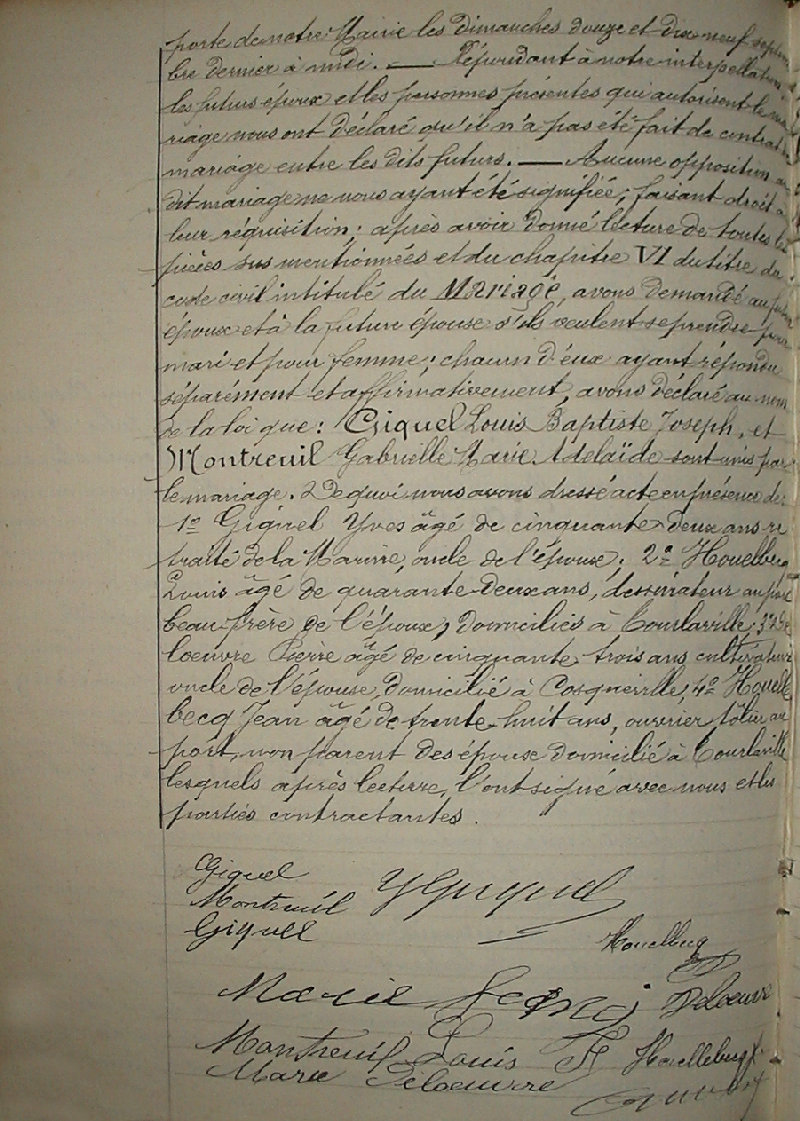 porte de notre Mairie les dimanches douze et dix neuf septem
bre dernier à midi. — Répondant à notre interpellation
les futurs époux et les personnes présentes qui autorisent le ma
riage nous ont déclaré qu'il n'a pas été fait de contrat
mariage entre les dits futurs. — Aucune opposition au
dit mariage ne nous ayant été signifiée; faisant droit à
leur réquisition; après avoir donné lecture de toutes les
pièces sus mentionnées et du chapitre VI du titre du
code civil intitulé du Mariage, avons demandé au futur
époux et à la future épouse s'ils veulent se prendre pour
mari et pour femme; chacun d'eux ayant répondu
séparément et affirmativement, avons déclaré au nom
de la loi que: Giquel Louis Baptiste Joseph, et
Montreuil Gabrielle Marie Adelaïde sont unis par
le mariage. De quoi nous avons dressé acte en présence de:
1º Giquel Yves âgé de cinquante deux ans re
traité de la Marine, oncle de l'épouse; 2º Houelbecq
Louis âgé de quarante deux ans, dessinateur au port
beau frère de l'époux, domiciliés à Tourlaville; 3º De
loeuvre Pierre âgé de cinquante trois ans cultivateur
oncle de l'épouse, domicilié à Cosqueville; 4º Houelle
becq Jean âgé de trente huit ans, ouvrier tôlier au
port, non parent des époux domicilié à Tourlaville
lesquels après lecture, l'ont signé avec nous et les
parties contractantes.
Giquel
Montreuil YGiquel
Giquel
Houelbecq
Marie Deloeuvre
Montreuil Louis Houellebecq
Marie Deloeuvre